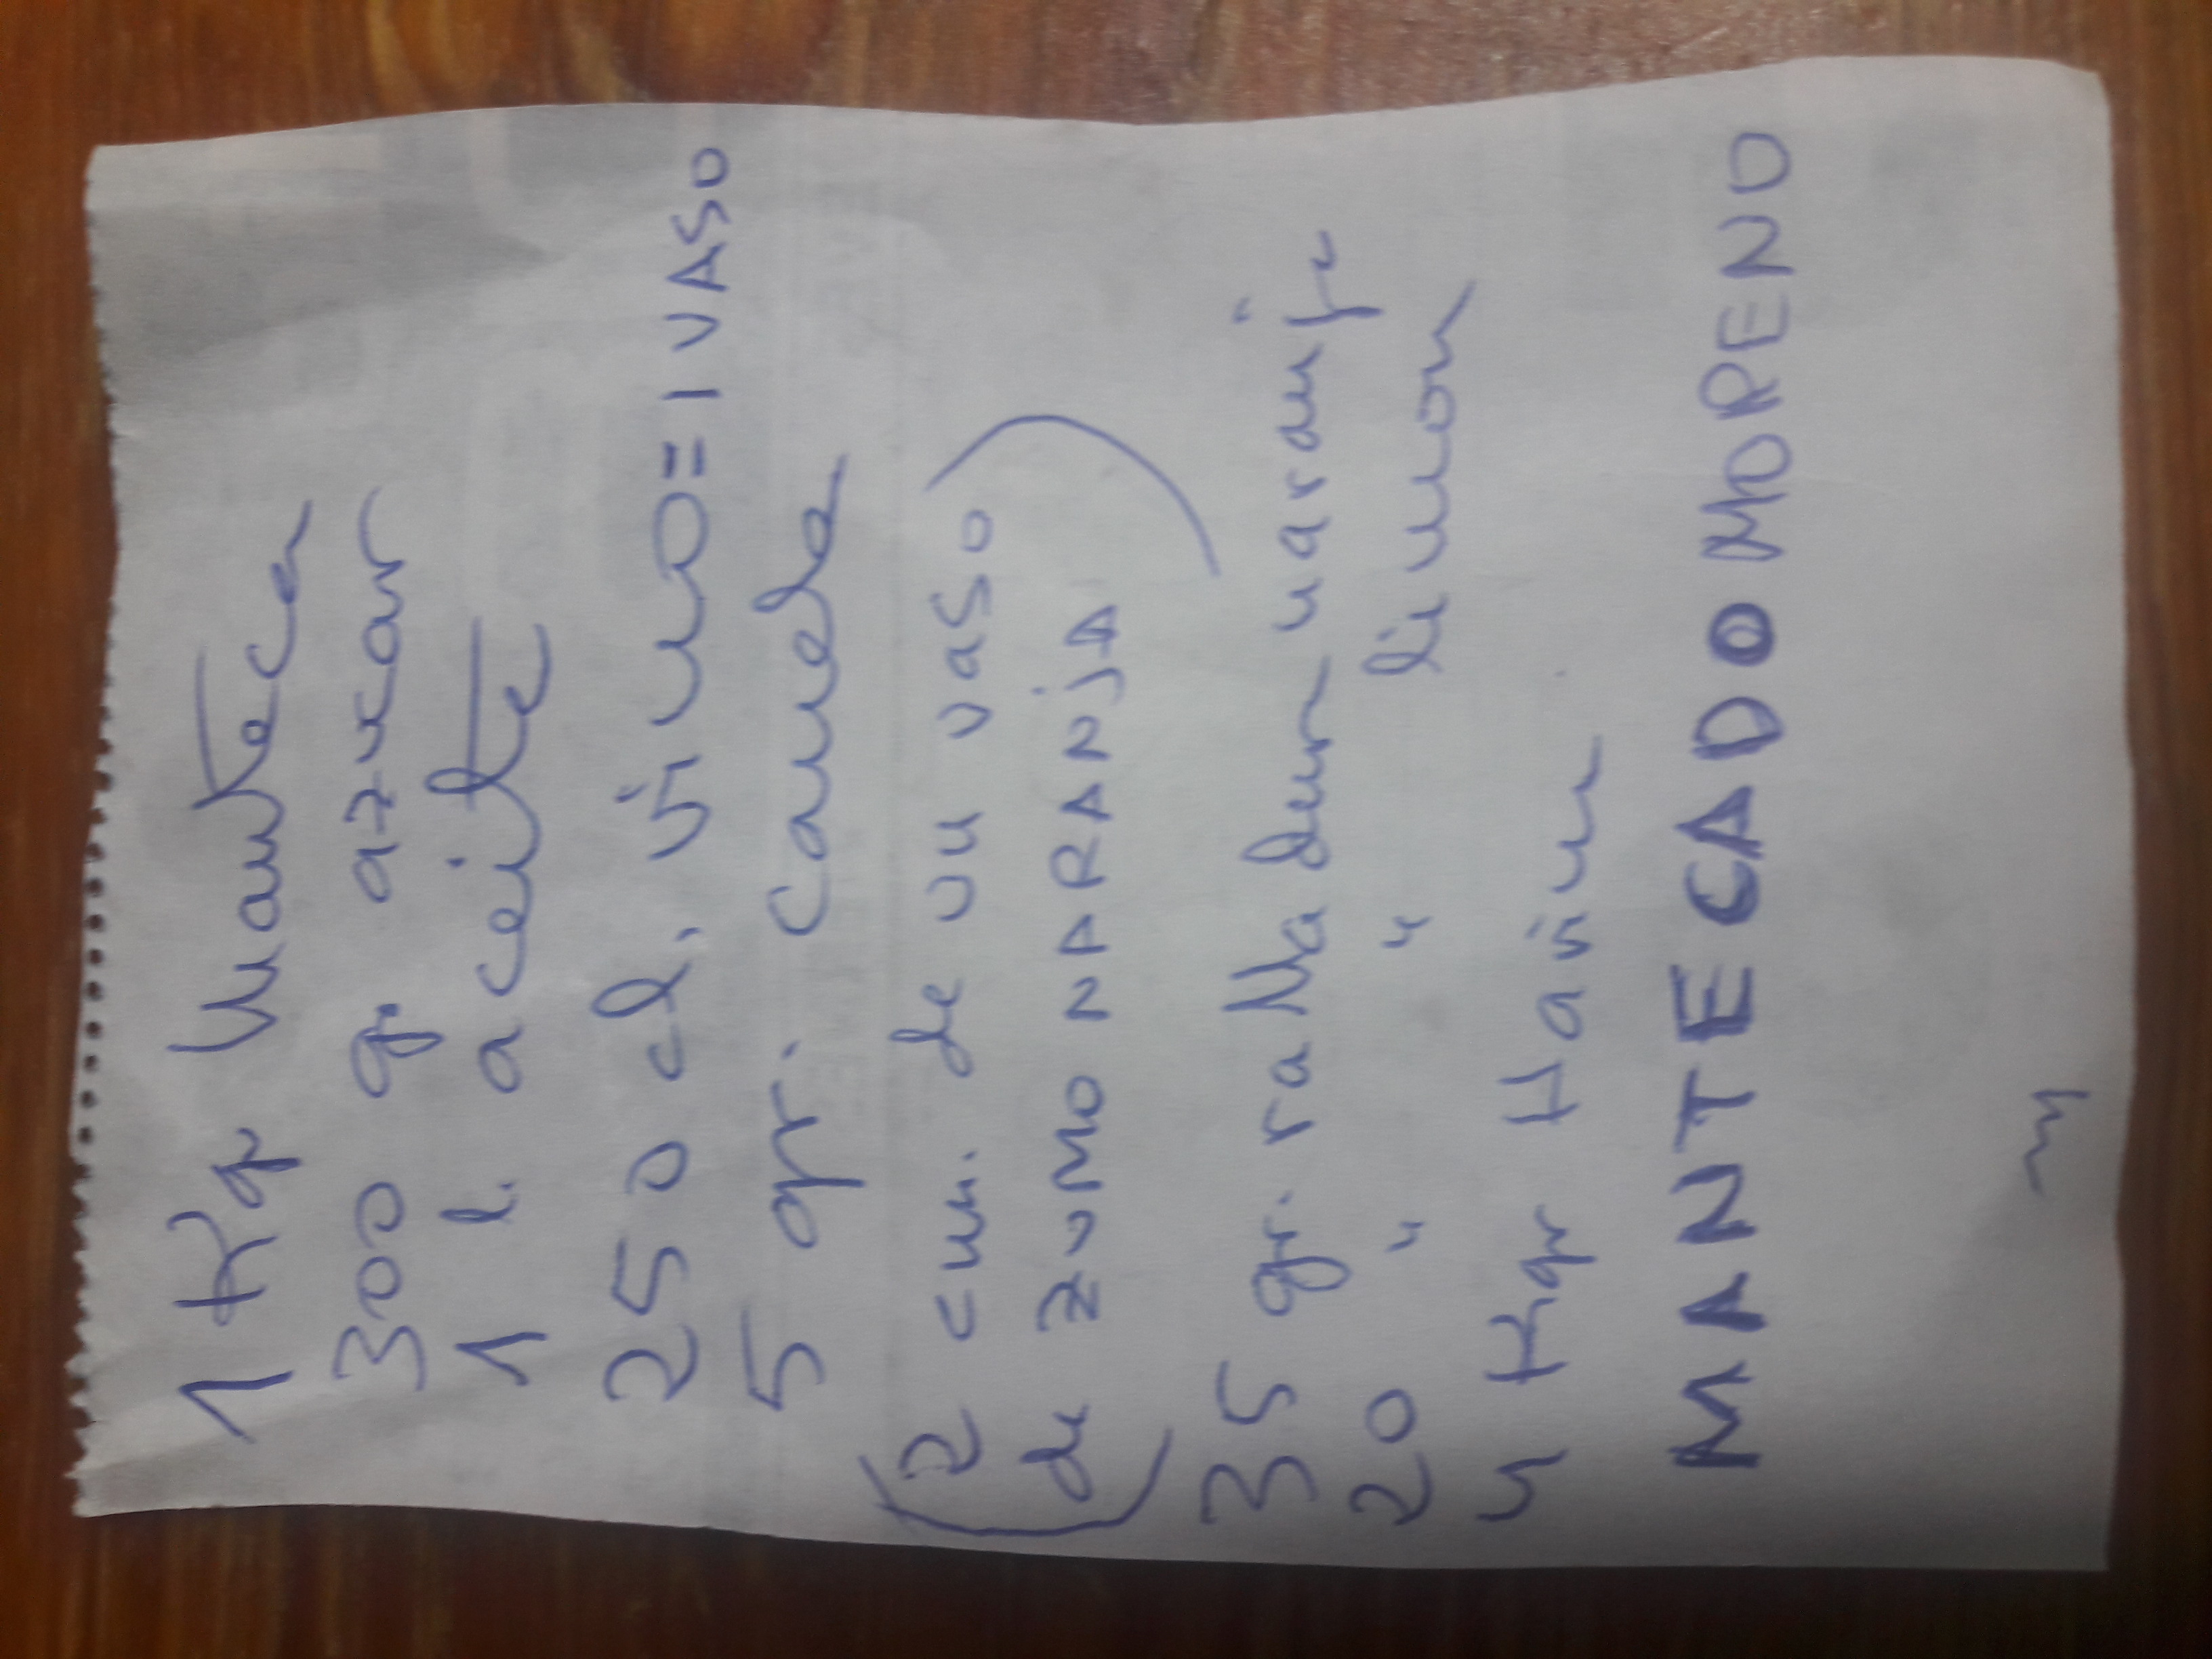 1 Kg Manteca
300 gr azucar
1 l. aceite
250 cl. vino = 1 VASO
5 gr. canela
(2 cm. de un vaso
de ZUMO NARANJA)
35 gr. ralladura naranja
20 " " limon
4 Kgr Harina
MANTECADO MORENO